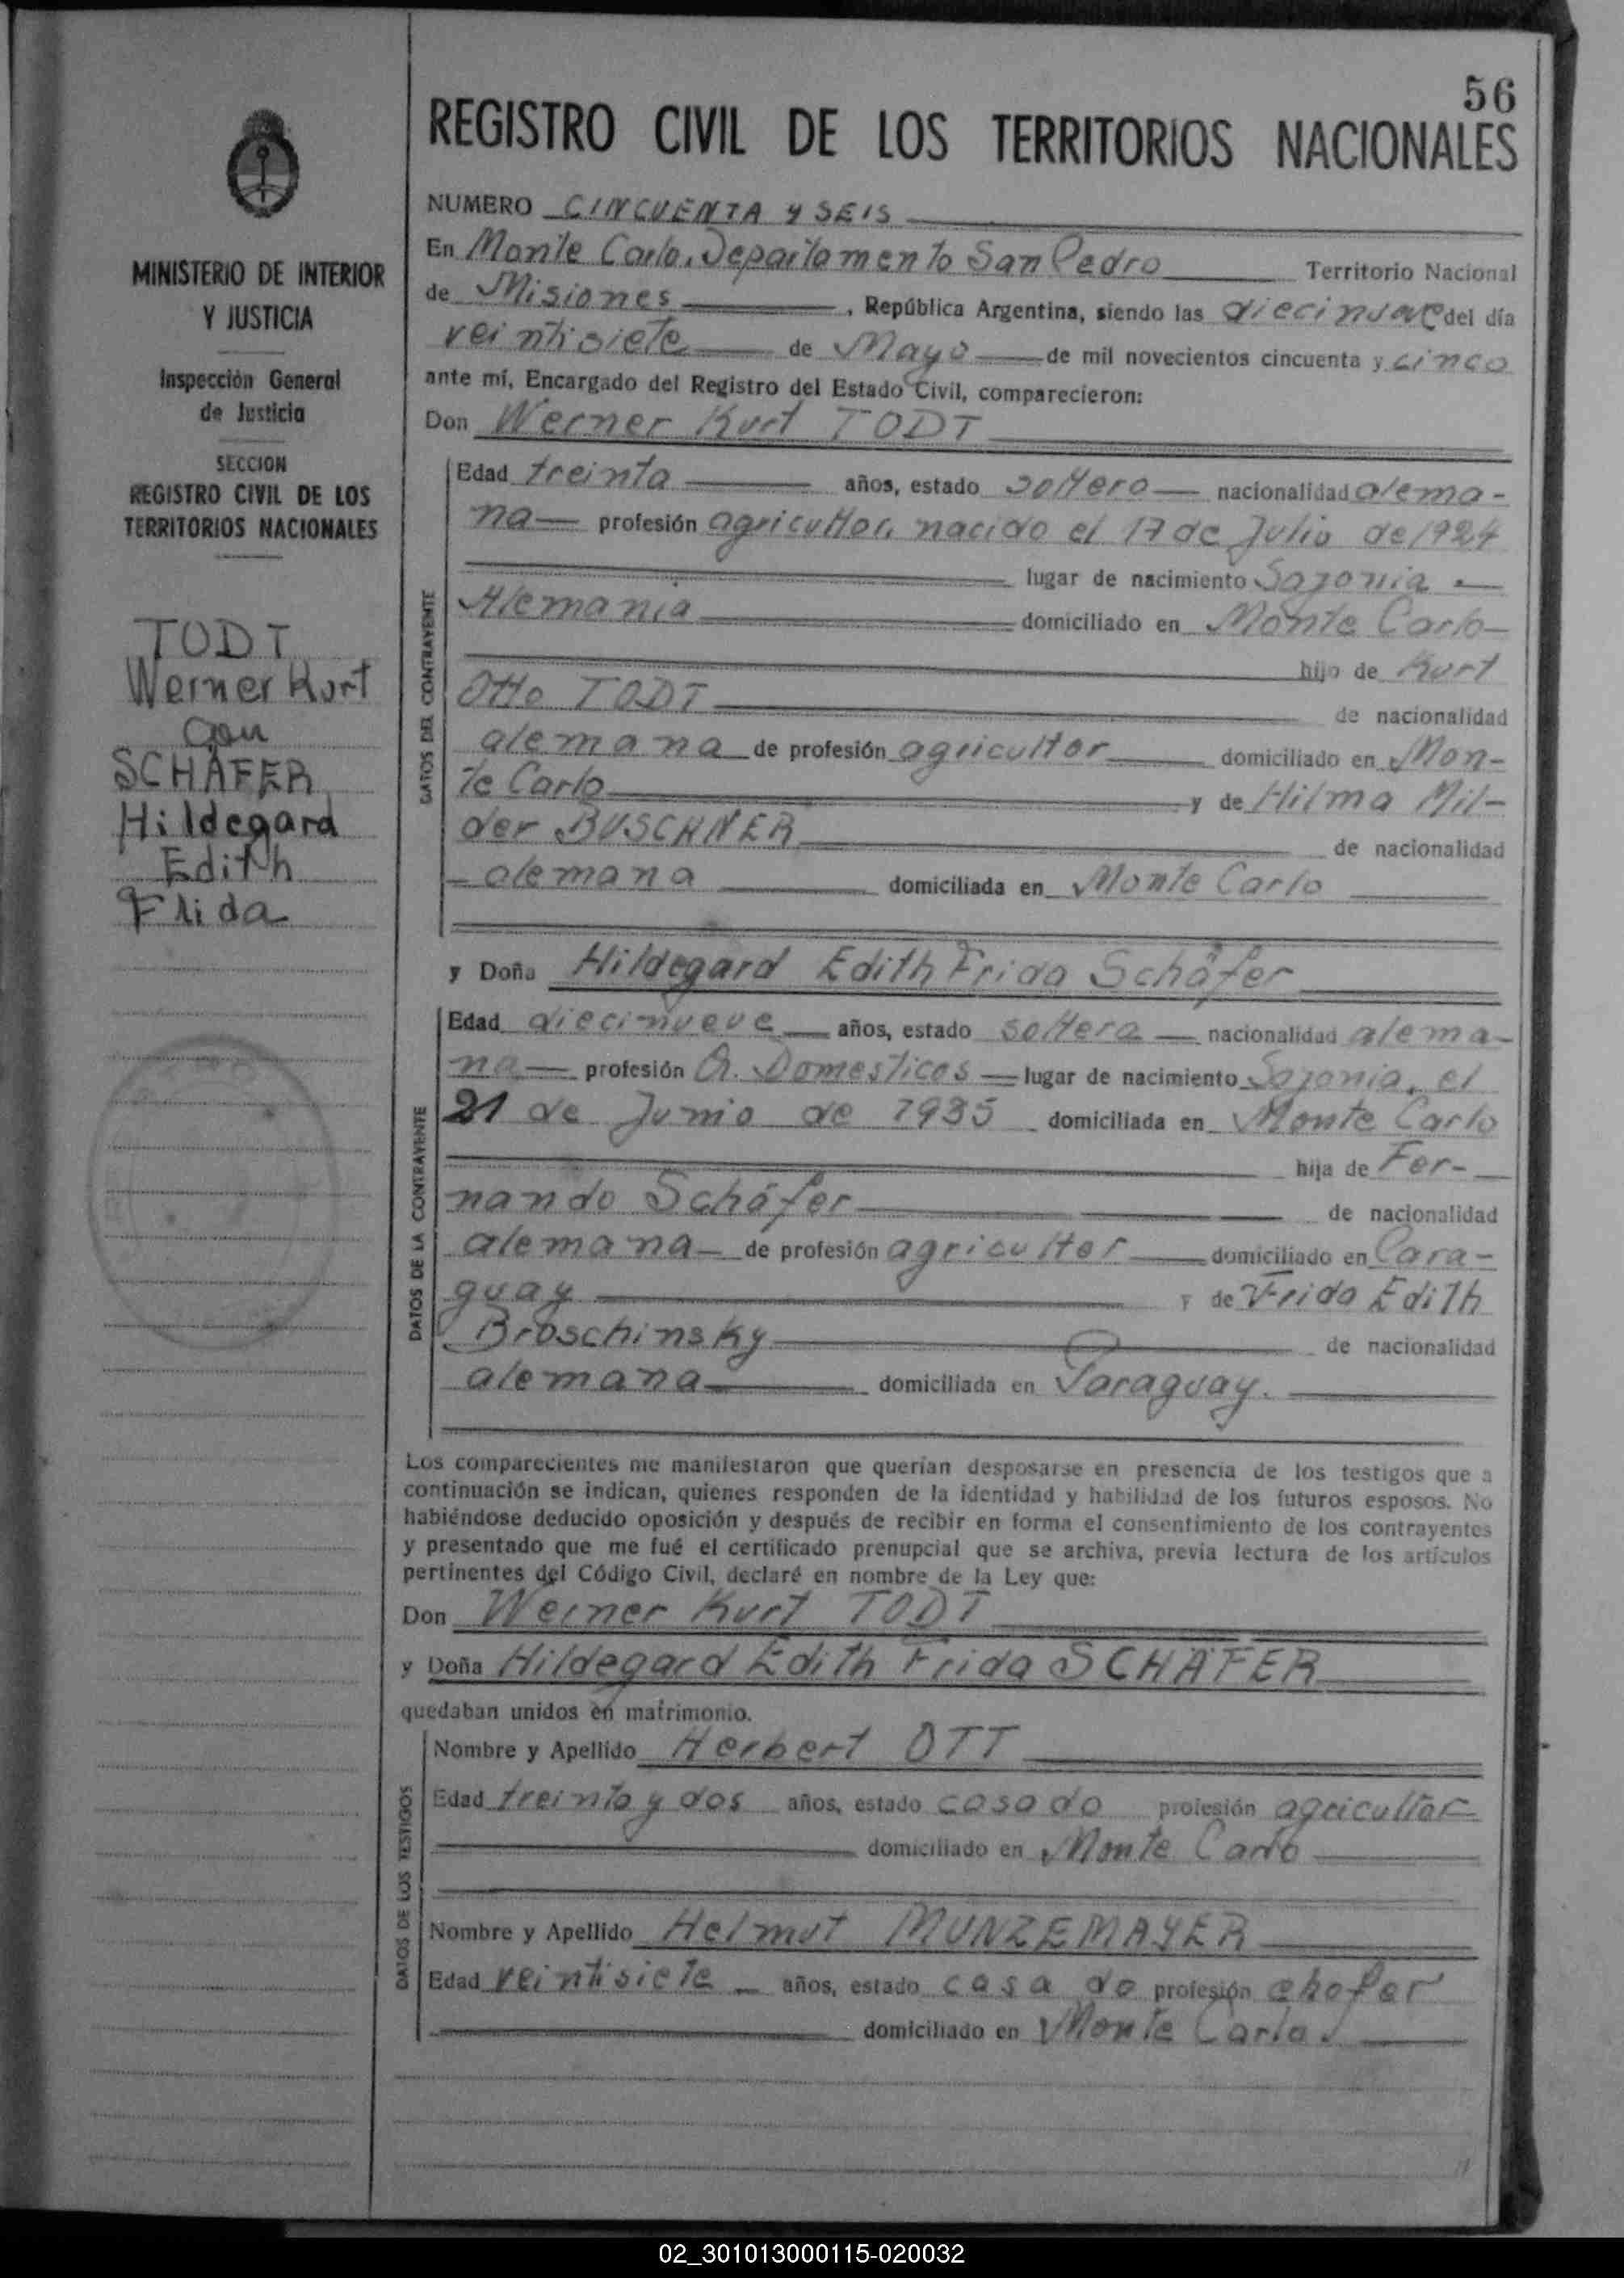 56
REGISTRO CIVIL DE LOS TERRITORIOS NACIONALES
MINISTERIO DE INTERIOR
Y JUSTICIA
Inspección General
de Justicia
SECCION
REGISTRO CIVIL DE LOS
TERRITORIOS NACIONALES
TODT
Werner Kurt
con
SCHÄFER
Hildegard
Edith
Frida
NUMERO CINCUENTA y SEIS
En Monte Carlo, Departamento San Pedro Territorio Nacional
de Misiones, República Argentina, siendo las diecinueve del día
veintisiete de Mayo de mil novecientos cincuenta y cinco
ante mí, Encargado del Registro del Estado Civil, comparecieron:
Don Werner Kurt TODT
DATOS DEL CONTRAYENTE
Edad treinta años, estado soltero nacionalidad alema-
na profesión agricultor, nacido el 17 de Julio de 1924
lugar de nacimiento Sajonia
Alemania domiciliado en Monte Carlo
hijo de Kurt
Otto TODT de nacionalidad
alemana de profesión agricultor domiciliado en Mon-
te Carlo y de Hilma Mil-
der BUSCHNER de nacionalidad
alemana domiciliada en Monte Carlo
y Doña Hildegard Edith Frida Schäfer
DATOS DE LA CONTRAYENTE
Edad diecinueve años, estado soltera nacionalidad alema-
na profesión Q. Domesticos lugar de nacimiento Sajonia, el
21 de Junio de 1935 domiciliada en Monte Carlo
hija de Fer-
nando Schäfer de nacionalidad
alemana de profesión agricultor domiciliado en Para-
guay y de Frida Edith
Broschinsky de nacionalidad
alemana domiciliada en Paraguay.
Los comparecientes me manifestaron que querían desposarse en presencia de los testigos que a
continuación se indican, quienes responden de la identidad y habilidad de los futuros esposos. No
habiéndose deducido oposición y después de recibir en forma el consentimiento de los contrayentes
y presentado que me fué el certificado prenupcial que se archiva, previa lectura de los artículos
pertinentes del Código Civil, declaré en nombre de la Ley que:
Don Werner Kurt TODT
y Doña Hildegard Edith Frida SCHÄFER
quedaban unidos en matrimonio.
DATOS DE LOS TESTIGOS
Nombre y Apellido Herbert OTT
Edad treinta y dos años, estado casado profesión agricultor
domiciliado en Monte Carlo
Nombre y Apellido Helmut MUNZEMAYER
Edad veintisiete años, estado casado profesión chofer
domiciliado en Monte Carlo.
02_301013000115-020032